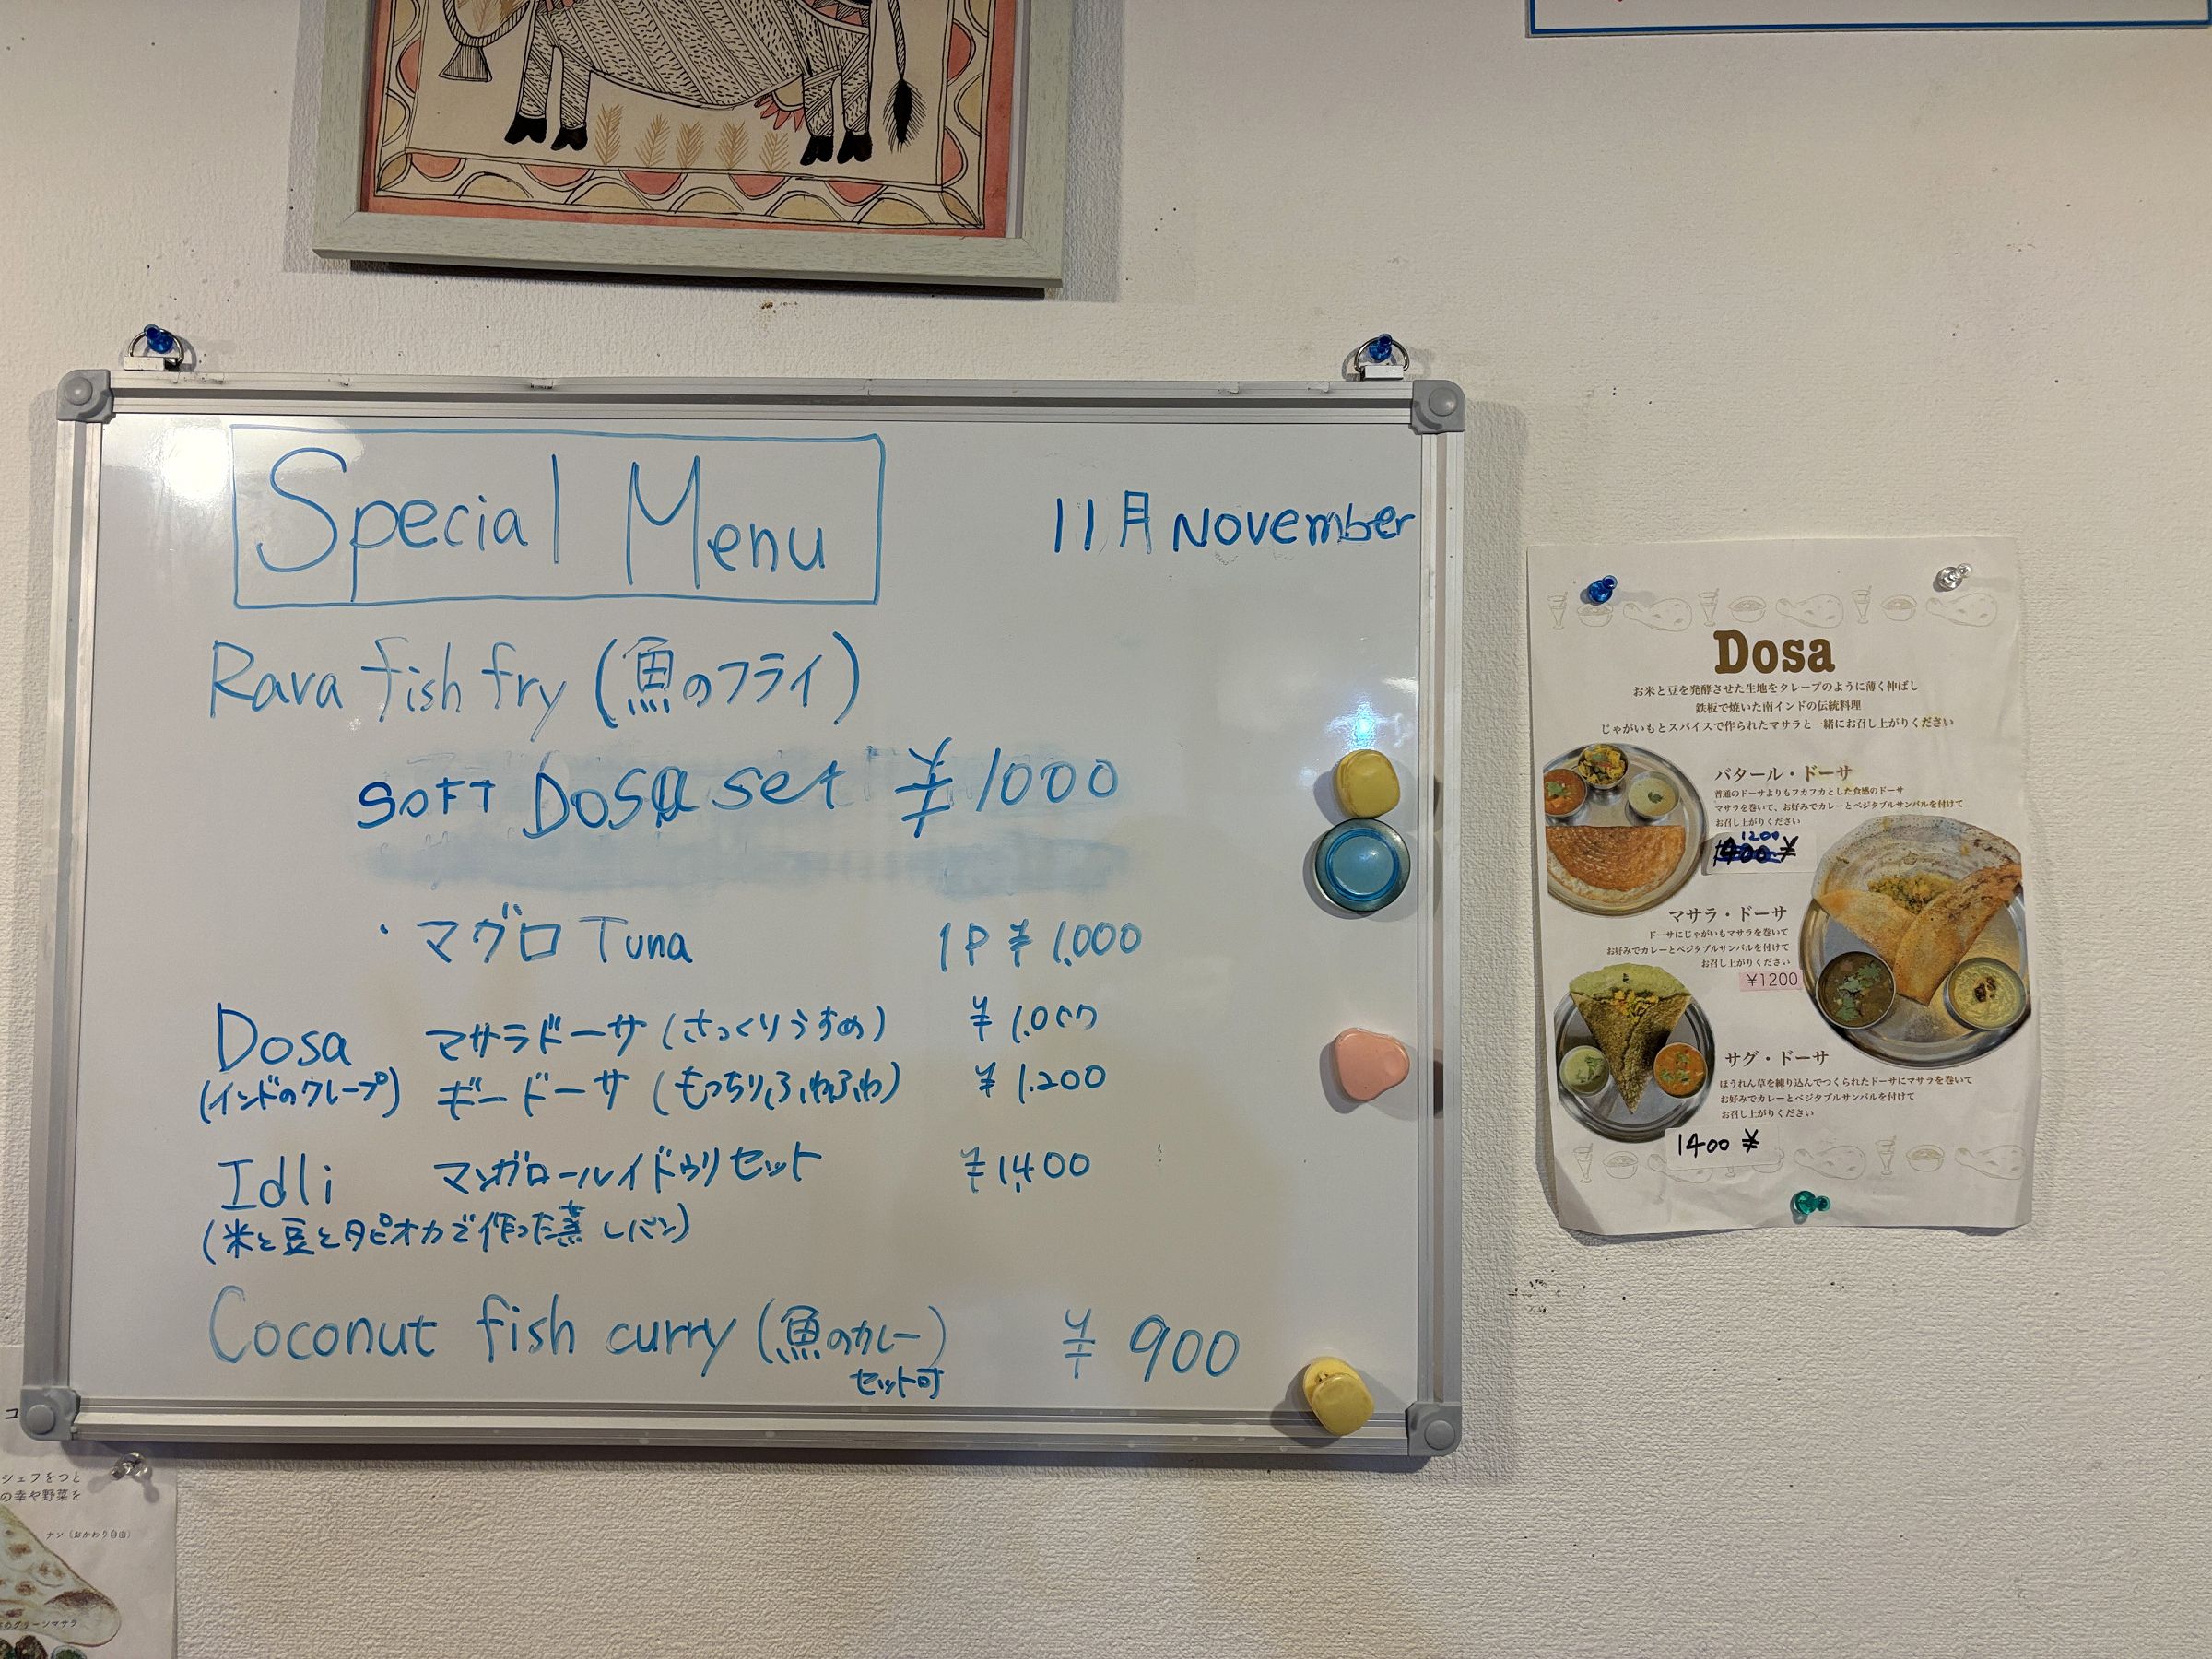 Special Menu
11月 November
Rava fish fry (魚のフライ)
SOFT Dosa set ¥1000
・マグロ Tuna 1P ¥1,000
Dosa マサラドーサ (さっくりうすめ) ¥1,000
(インドのクレープ) ギードーサ (もっちり、ふわふわ) ¥1,200
Idli マンガロールイドゥリセット ¥1,400
(米と豆とタピオカで作った蒸しパン)
Coconut fish curry (魚のカレー) ¥900
セット可
Dosa
お米と豆を発酵させた生地をクレープのように薄く伸ばし
鉄板で焼いた南インドの伝統料理
じゃがいもとスパイスで作られたマサラと一緒にお召し上がりください
バタール・ドーサ
普通のドーサよりもフカフカとした食感のドーサ
マサラを巻いて、お好みでカレーとベジタブルサンバルを付けて
お召し上がりください
1200
¥
マサラ・ドーサ
ドーサにじゃがいもマサラを巻いて
お好みでカレーとベジタブルサンバルを付けて
お召し上がりください
¥1200
サグ・ドーサ
ほうれん草を練り込んでつくられたドーサにマサラを巻いて
お好みでカレーとベジタブルサンバルを付けて
お召し上がりください
1400 ¥
コ
シェフをつと
の幸や野菜を
ナン（おかわり自由）
グリーンマサラ